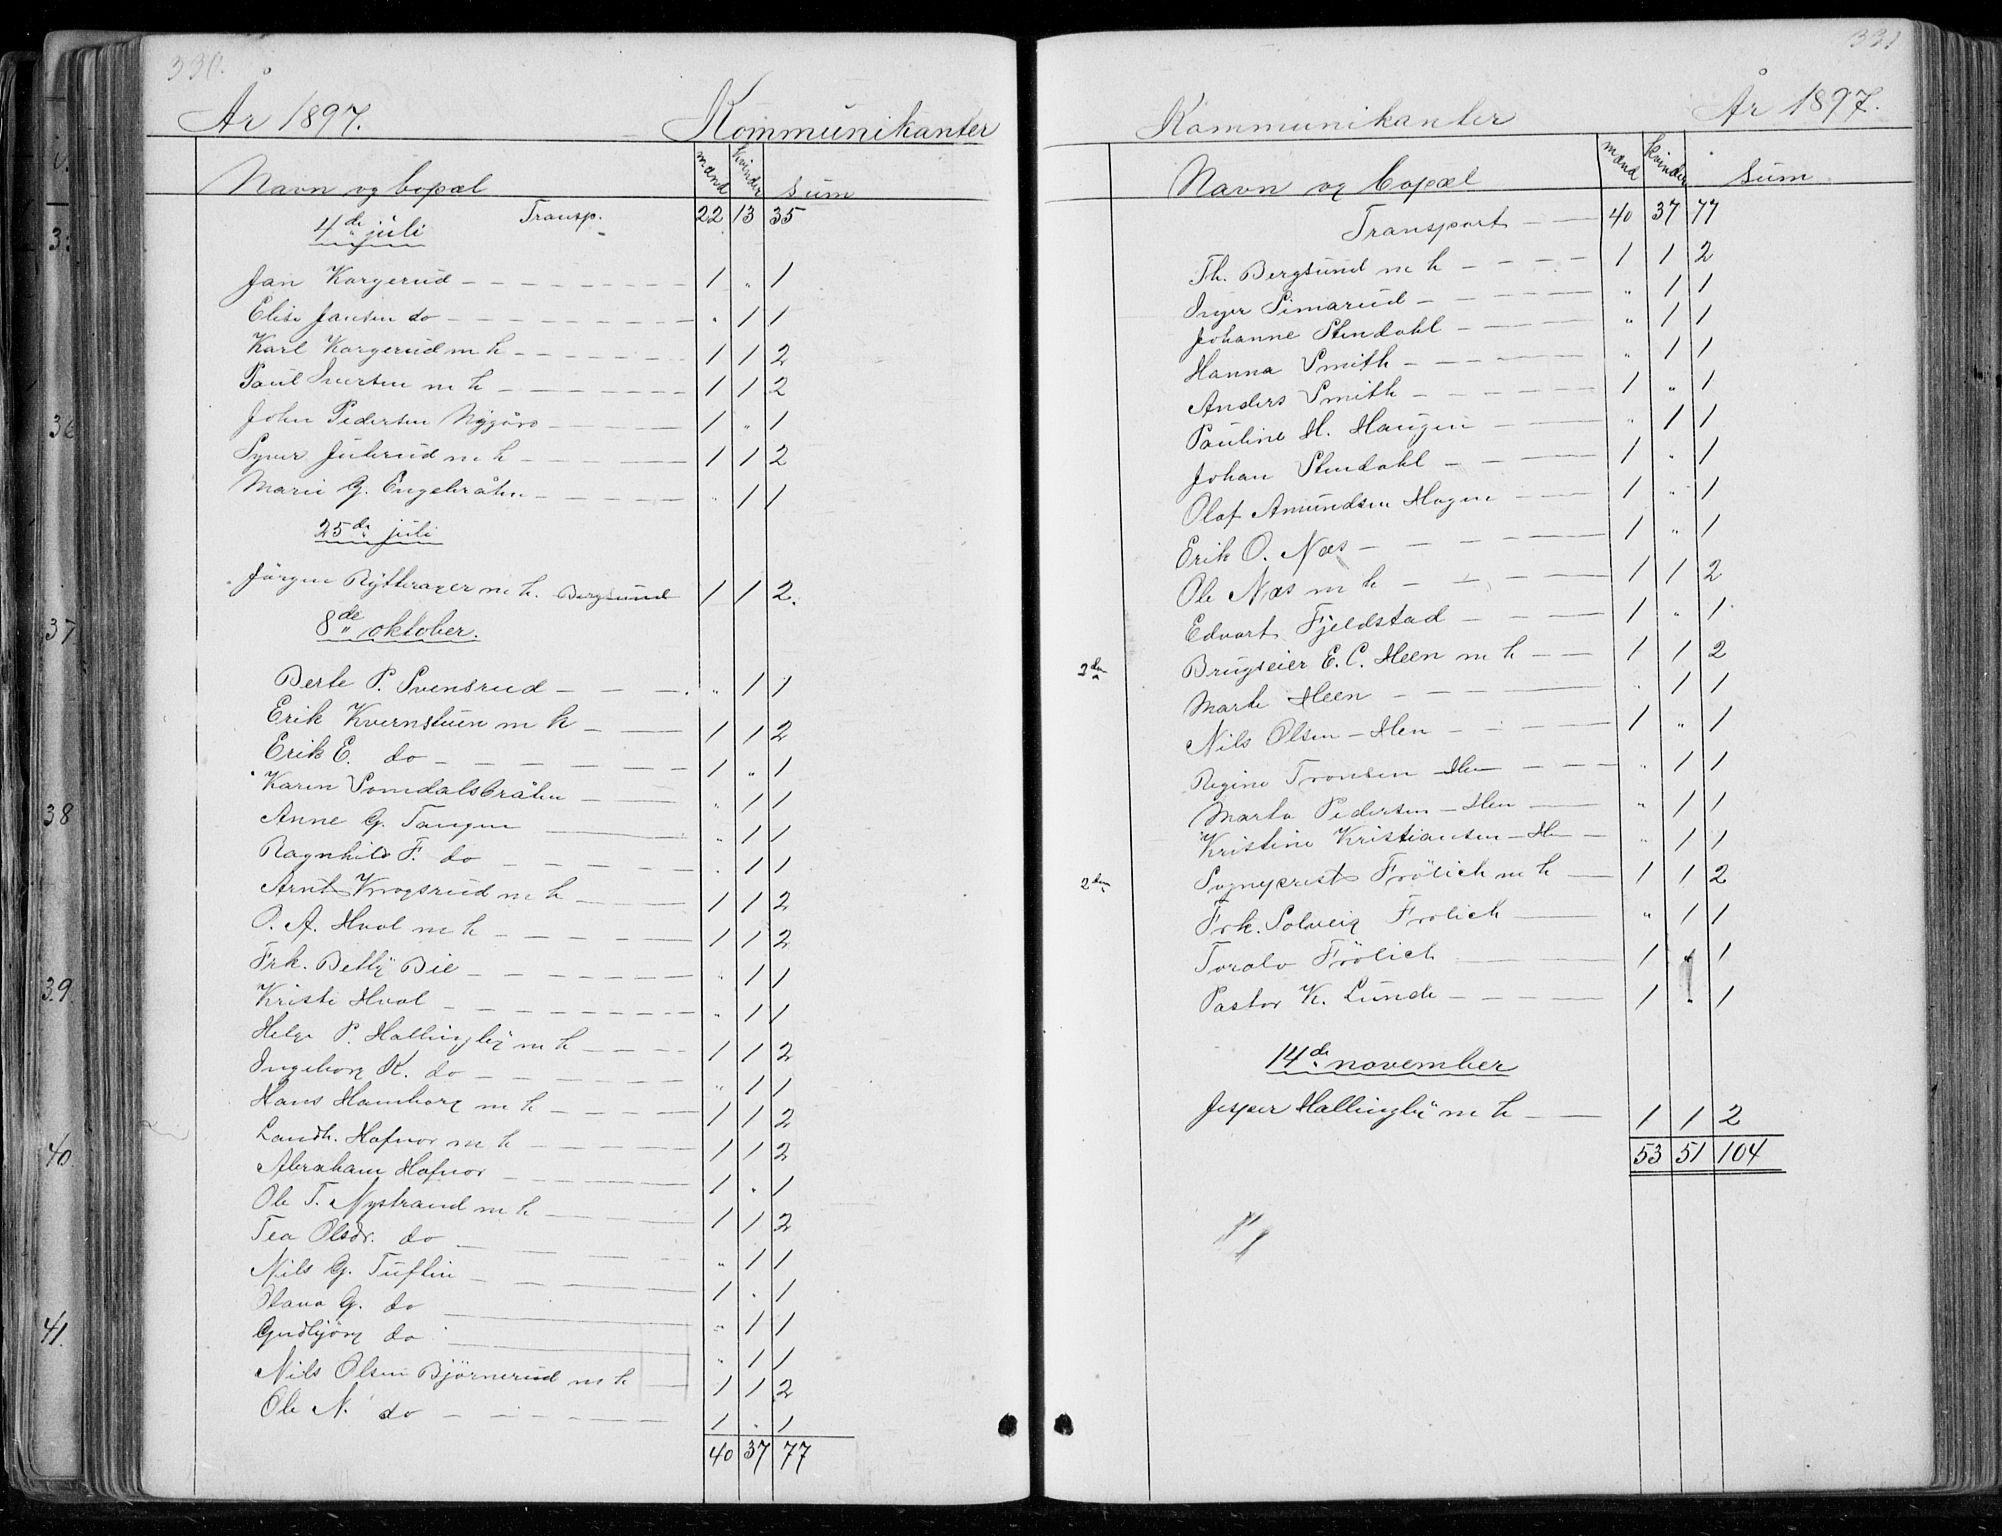 330.
År 1897. Kommunikanter
Navn og bopæl mænd kvinder sum
Transp. 22 13 35
4de juli
Jan Korgerud 1 " 1
Elise Jansen do " 1 1
Karl Korgerud m h 1 1 2
Paul Iversen m h 1 1 2
John Pedersen 1 " 1
Syver Julerud m h 1 1 2
Marie G. Engebråten " 1 1
25de juli
Jörgen Rytterager m h. Bergsund 1 1 2.
8de oktober.
Berte P. Svensrud " 1 1
Erik Kvernstuen m h 1 1 2
Erik E. do 1 " 1
Karen Somdalsbråten " 1 1
Anne G. Tangen " 1 1
Ragnhild F. do " 1 1
Arnt Krogsrud m h 1 1 2
O. A. Hval m h 1 1 2
Frk. Betty Bie " 1 1
Kristi Hval " 1 1
Helge P. Hallingby m h 1 1 2
Ingeborg K. do " 1 1
Hans Hamborg m h 1 1 2
Landh. Hafnor m h 1 1 2
Abraham Hafnor 1 " 1
Ole T. Nystrand m h 1 1 2
Tea Olsdr. do " 1 1
Nils G. Tuftin 1 " 1
G. do " 1 1
Gudbjörg do " 1 1
Nils Olsen Björnerud m h 1 1 2
Ole N. do 1 " 1
40 37 77
331
Kommunikanter År 1897.
Navn og bopæl mænd kvinder sum
Transport 40 37 77
Th. Bergsund m h 1 1 2
Inger Simarud " 1 1
Johanne Stendahl " 1 1
Hanna Smith " 1 1
Anders Smith 1 " 1
Pauline H. Haugen " 1 1
Johan Stendahl 1 " 1
Olaf Amundsen Hagen 1 " 1
Erik O. Næs 1 " 1
Ole Næs m h 1 1 2
Edvart Fjeldstad 1 " 1
Brugseier E. C. Heen m h 1 1 2
Marte Heen " 1 1
Nils Olsen - Hen 1 " 1
Regine Tronsen Hen " 1 1
Marta Pedersen - Hen " 1 1
Kristine Kristiansen - Hen " 1 1
2den Sogneprest Frölich m h 1 1 2
Frk. Solveig Frölich " 1 1
Toralv Frölich 1 " 1
Pastor K. Lunde 1 " 1
14de november
Jesper Hallingby m h 1 1 2
53 51 104
36
37
38
39.
40
41.